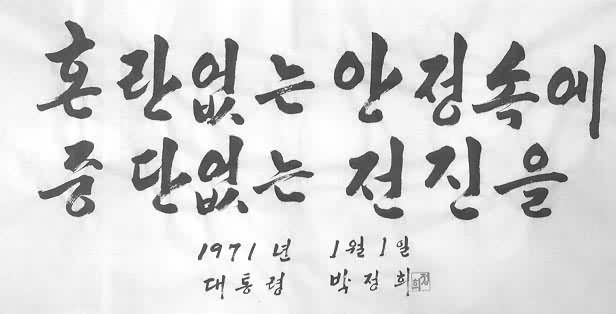 혼란없는 안정속에
중단없는 전진을
1971년 1월 1일
대통령 박정희